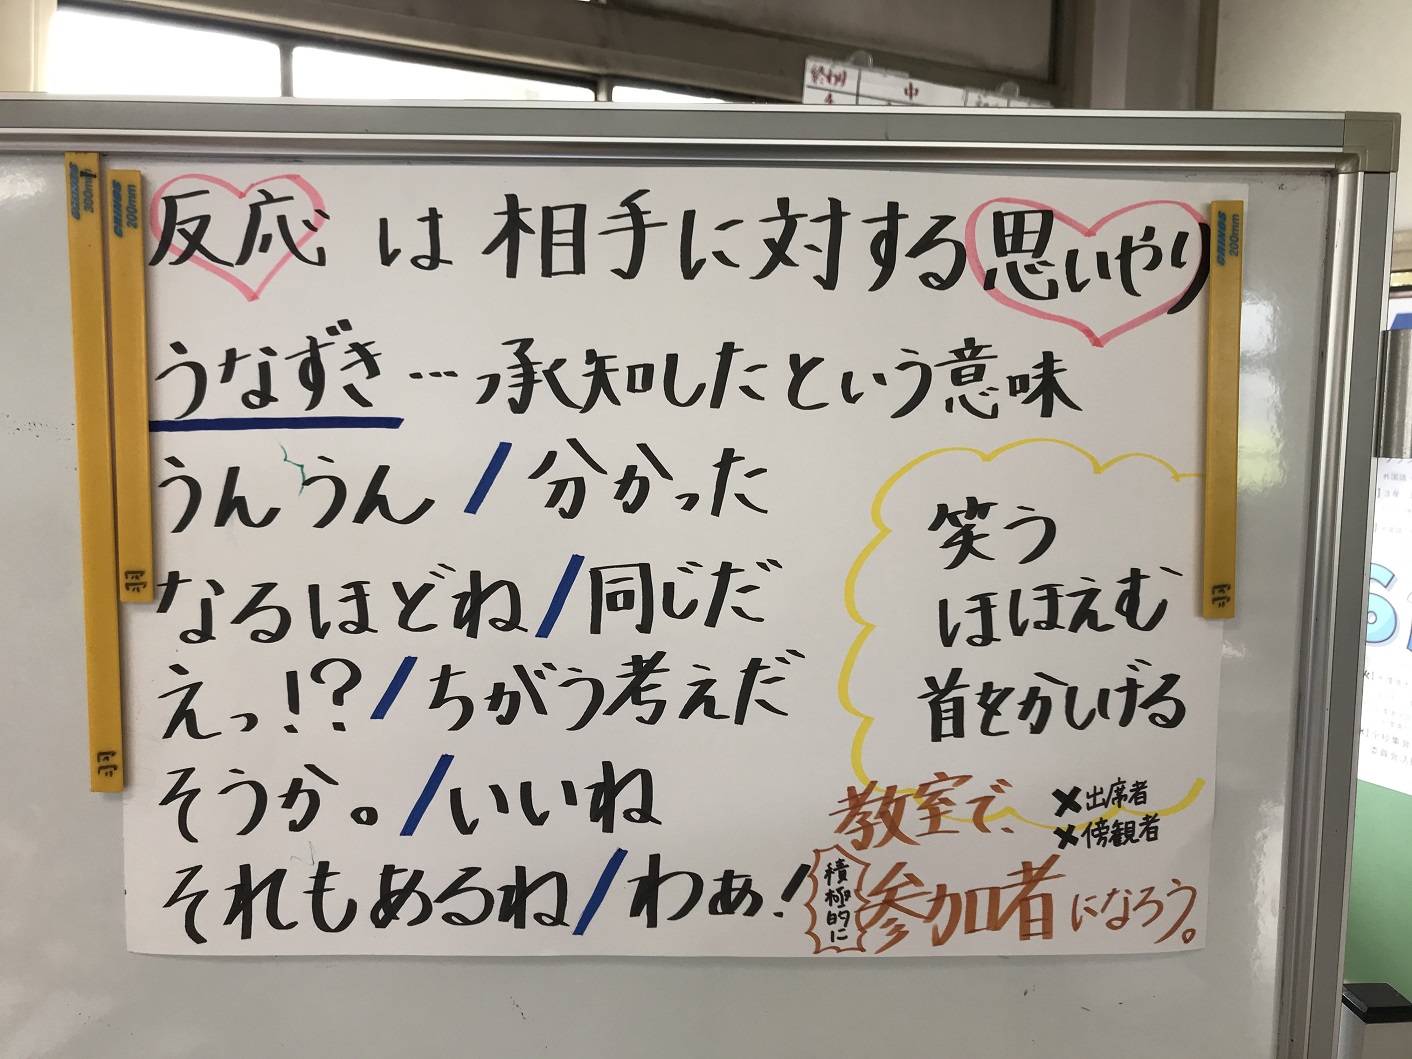 終わり
中
反応は相手に対する思いやり
うなずき…承知したという意味
うんうん/分かった
なるほどね/同じだ
えっ!?/ちがう考えだ
そうか。/いいね
それもあるね/わぁ!
笑う
ほほえむ
首をかしげる
教室で、
×出席者
×傍観者
積極的に
参加者になろう。
300mm
200mm
羽
羽
200mm
羽